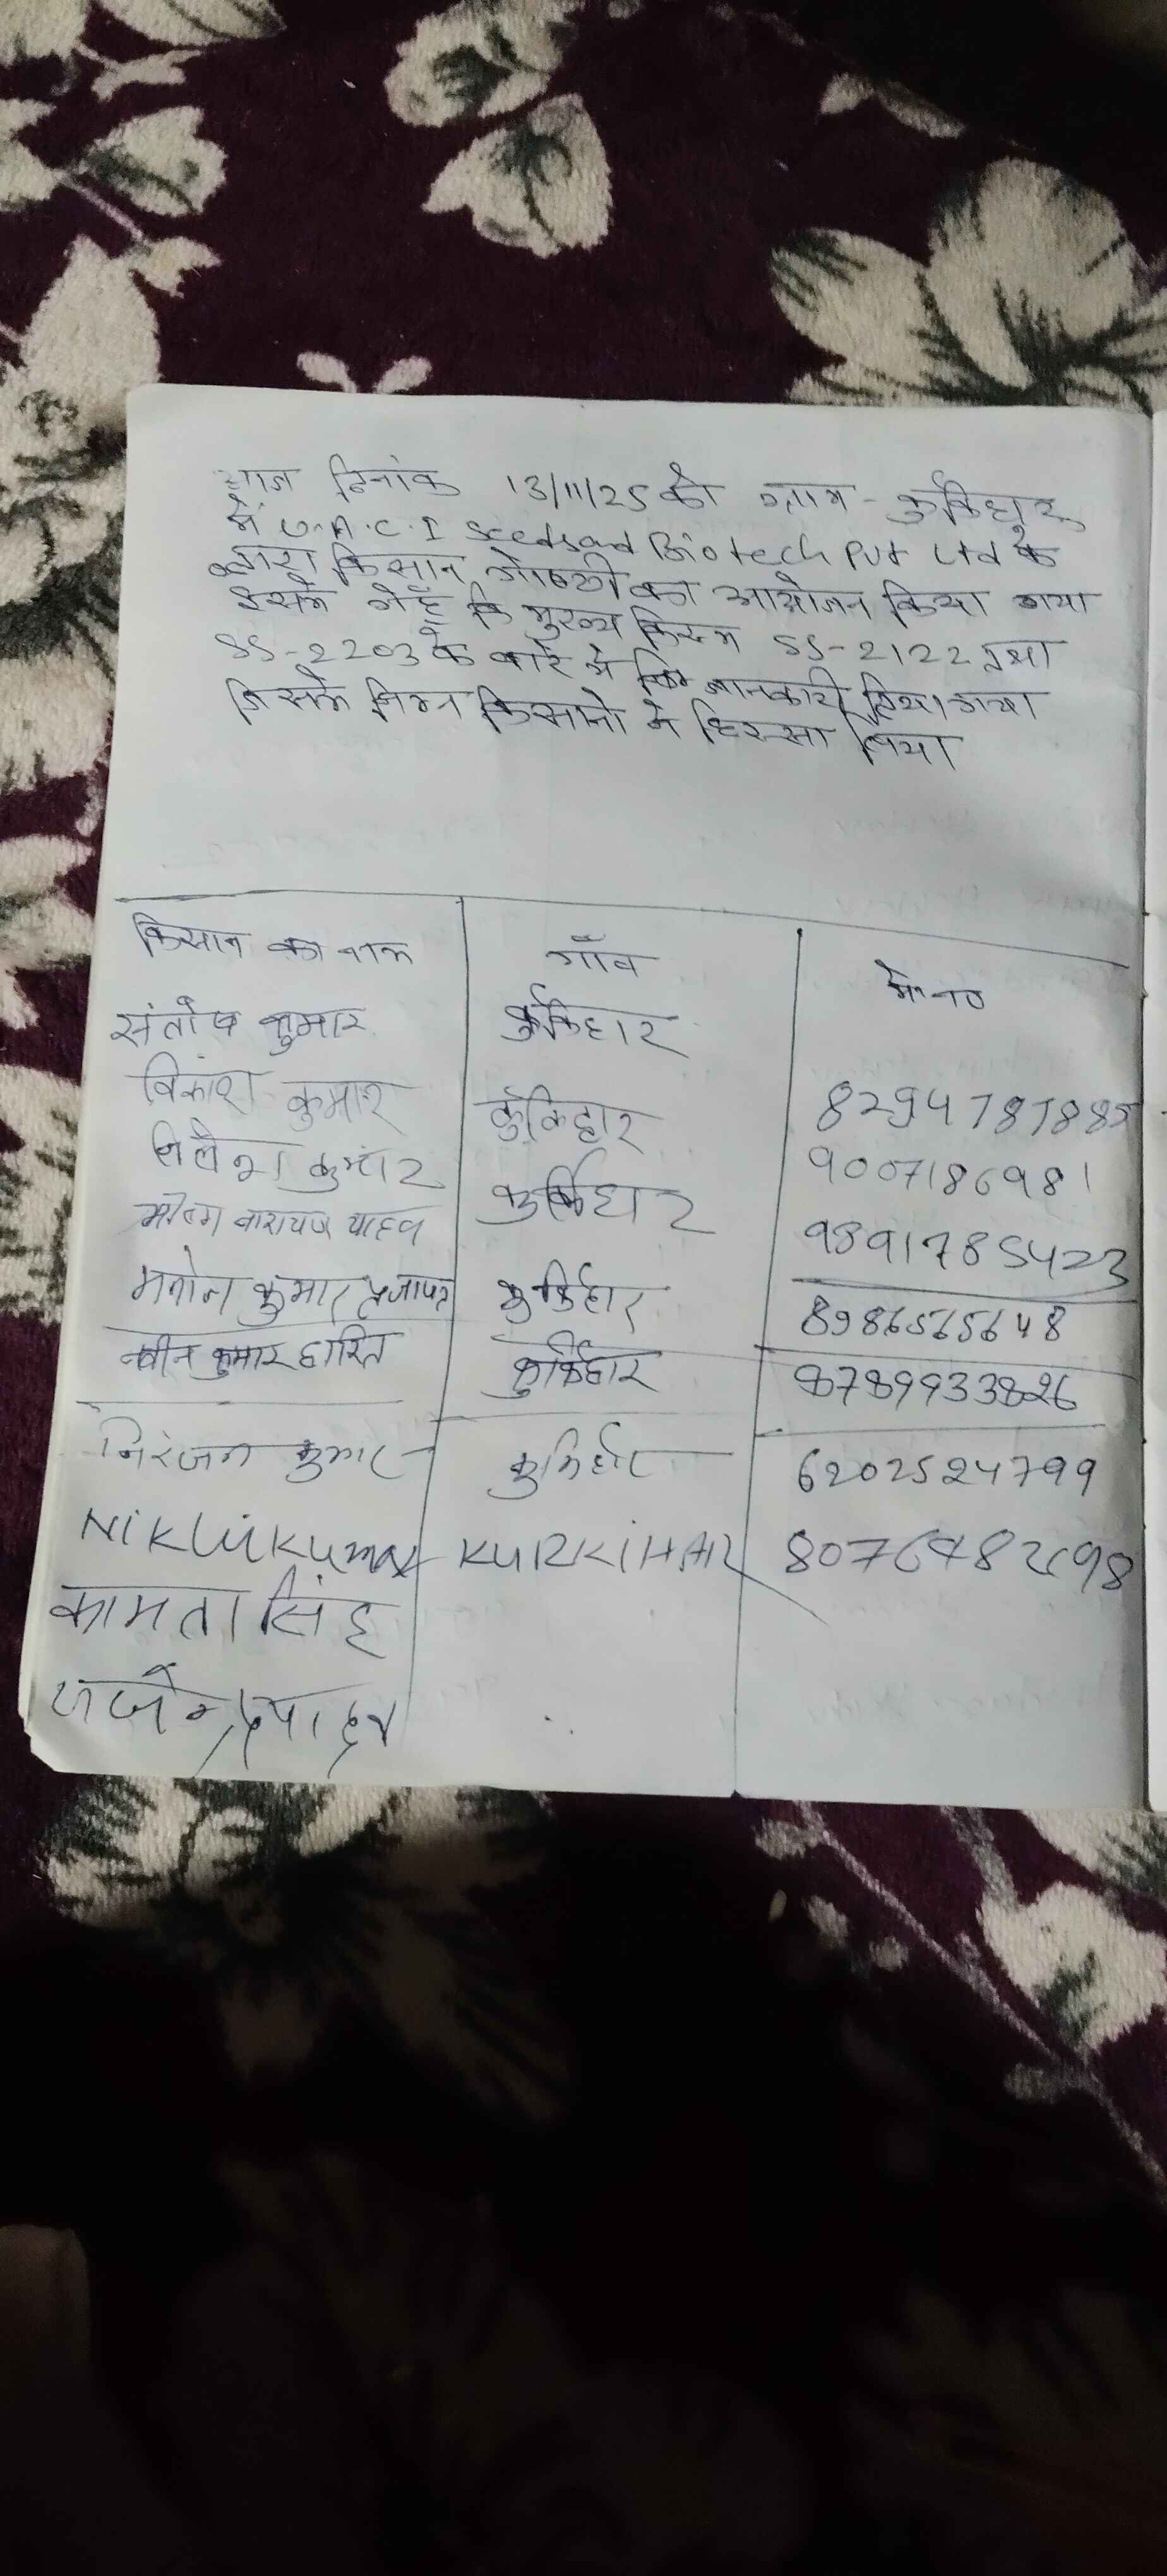 आज दिनांक 13/11/25 को ग्राम - कुर्किहार
में U.A.C.I Seeds and Biotech Pvt Ltd के
द्वारा किसान गोष्ठी का आयोजन किया गया
इसमें गेहूँ कि मुख्य किस्म SS-2122 तथा
SS-2203 के बारे में जानकारी दिया गया
जिसमें निम्न किसानो ने हिस्सा लिया
किसान का नाम गाँव मो० न०
संतोष कुमार कुर्किहार
विकाश कुमार कुर्किहार 8294787885
निलेश कुमार कुर्किहार 9007186981
नारायण यादव 9891785423
मनोज कुमार प्रजापत कुर्किहार 8986565648
नवीन कुमार हारित कुर्किहार 8789933826
निरंजन कुमार कुर्किहार 6202524799
Niklu Kumar KURKIHAR
कामता सिंह
यादव